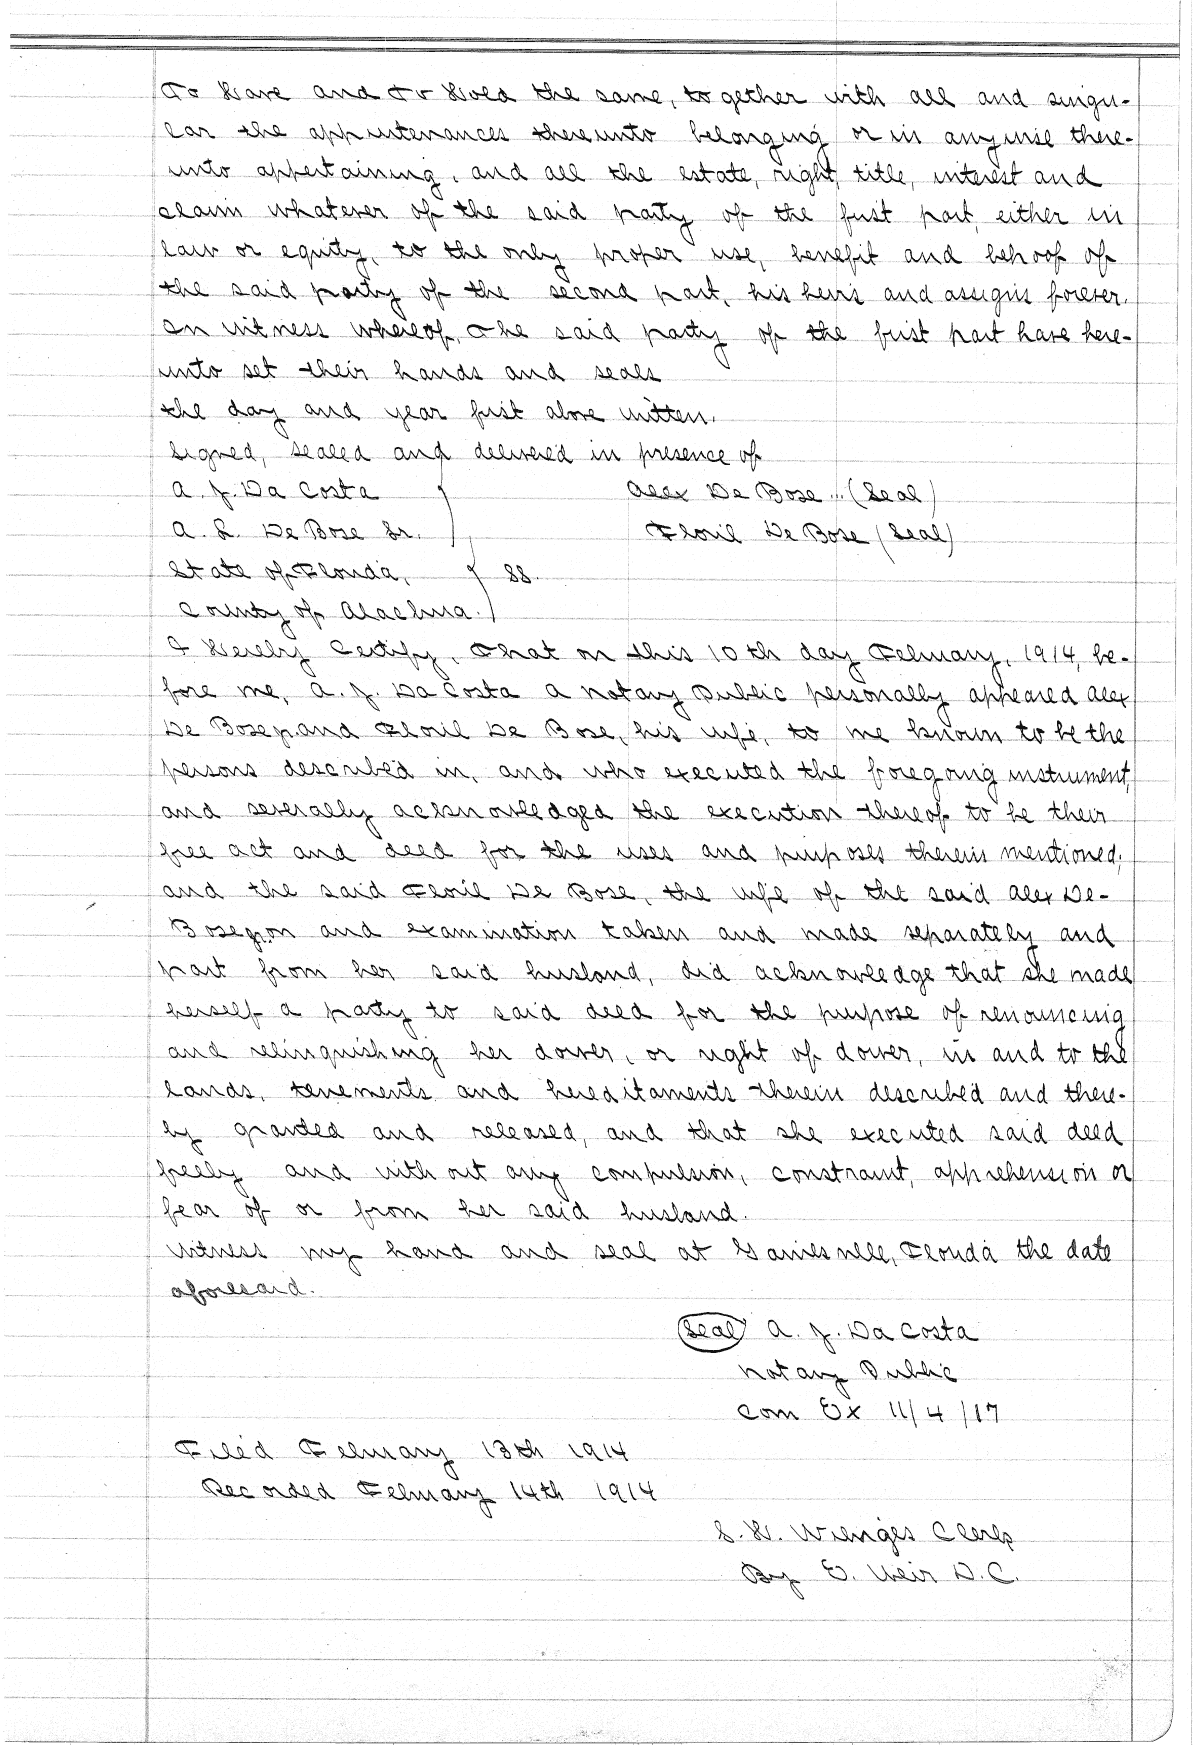 To Have and To Hold the same, together with all and singu-
lar the appurtenances thereunto belonging or in anywise there-
unto appertaining, and all the estate, right, title, interest and
claim whatever of the said party of the first part, either in
law or equity, to the only proper use, benefit and behoof of
the said party of the second part, his heirs and assigns forever.
In witness whereof, The said party of the first part have here-
unto set their hands and seals
the day and year first above written.
Signed, sealed and delivered in presence of
A. J. Da Costa Alex De Bose (Seal)
A. L. De Bose Sr. Floril De Bose (Seal)
State of Florida, } SS.
County of Alachua.
I Hereby Certify, That on this 10th day February, 1914, be-
fore me, A. J. Da Costa a Notary Public personally appeared Alex
De Bose and Floril De Bose, his wife, to me known to be the
persons described in, and who executed the foregoing instrument,
and severally acknowledged the execution thereof to be their
free act and deed for the uses and purposes therein mentioned;
and the said Floril De Bose, the wife of the said Alex De-
Bose on and examination taken and made separately and
part from her said husband, did acknowledge that she made
herself a party to said deed for the purpose of renouncing
and relinquishing her dower, or right of dower, in and to the
lands, tenements and hereditaments therein described and there-
by granted and released, and that she executed said deed
freely and without any compulsion, constraint, apprehension or
fear of or from her said husband.
Witness my hand and seal at Gainesville, Florida the date
aforesaid.
(Seal) A. J. Da Costa
Notary Public
Com Ex 11/4/17
Filed February 13th 1914
Recorded February 14th 1914
S. H. Wienges Clerk
By E. Weir D.C.